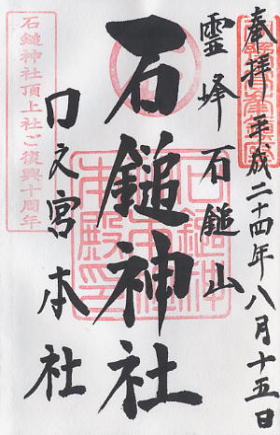 奉拝 平成二十四年八月十五日
霊峰 石鎚山
石鎚神社
口之宮本社
石鎚神社頂上社ご復興十周年
石鎚神
本殿印